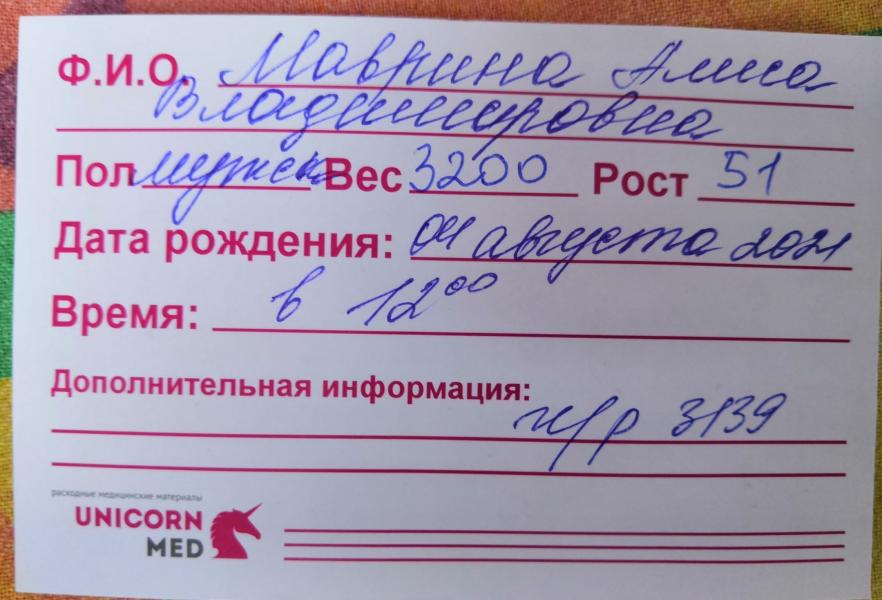 Ф.И.О. Маврина Алиса
Владимировна
Пол мужск Вес 3200 Рост 51
Дата рождения: 04 августа 2021
Время: в 12⁰⁰
Дополнительная информация:
и/р 3139
расходные медицинские материалы
UNICORN
MED